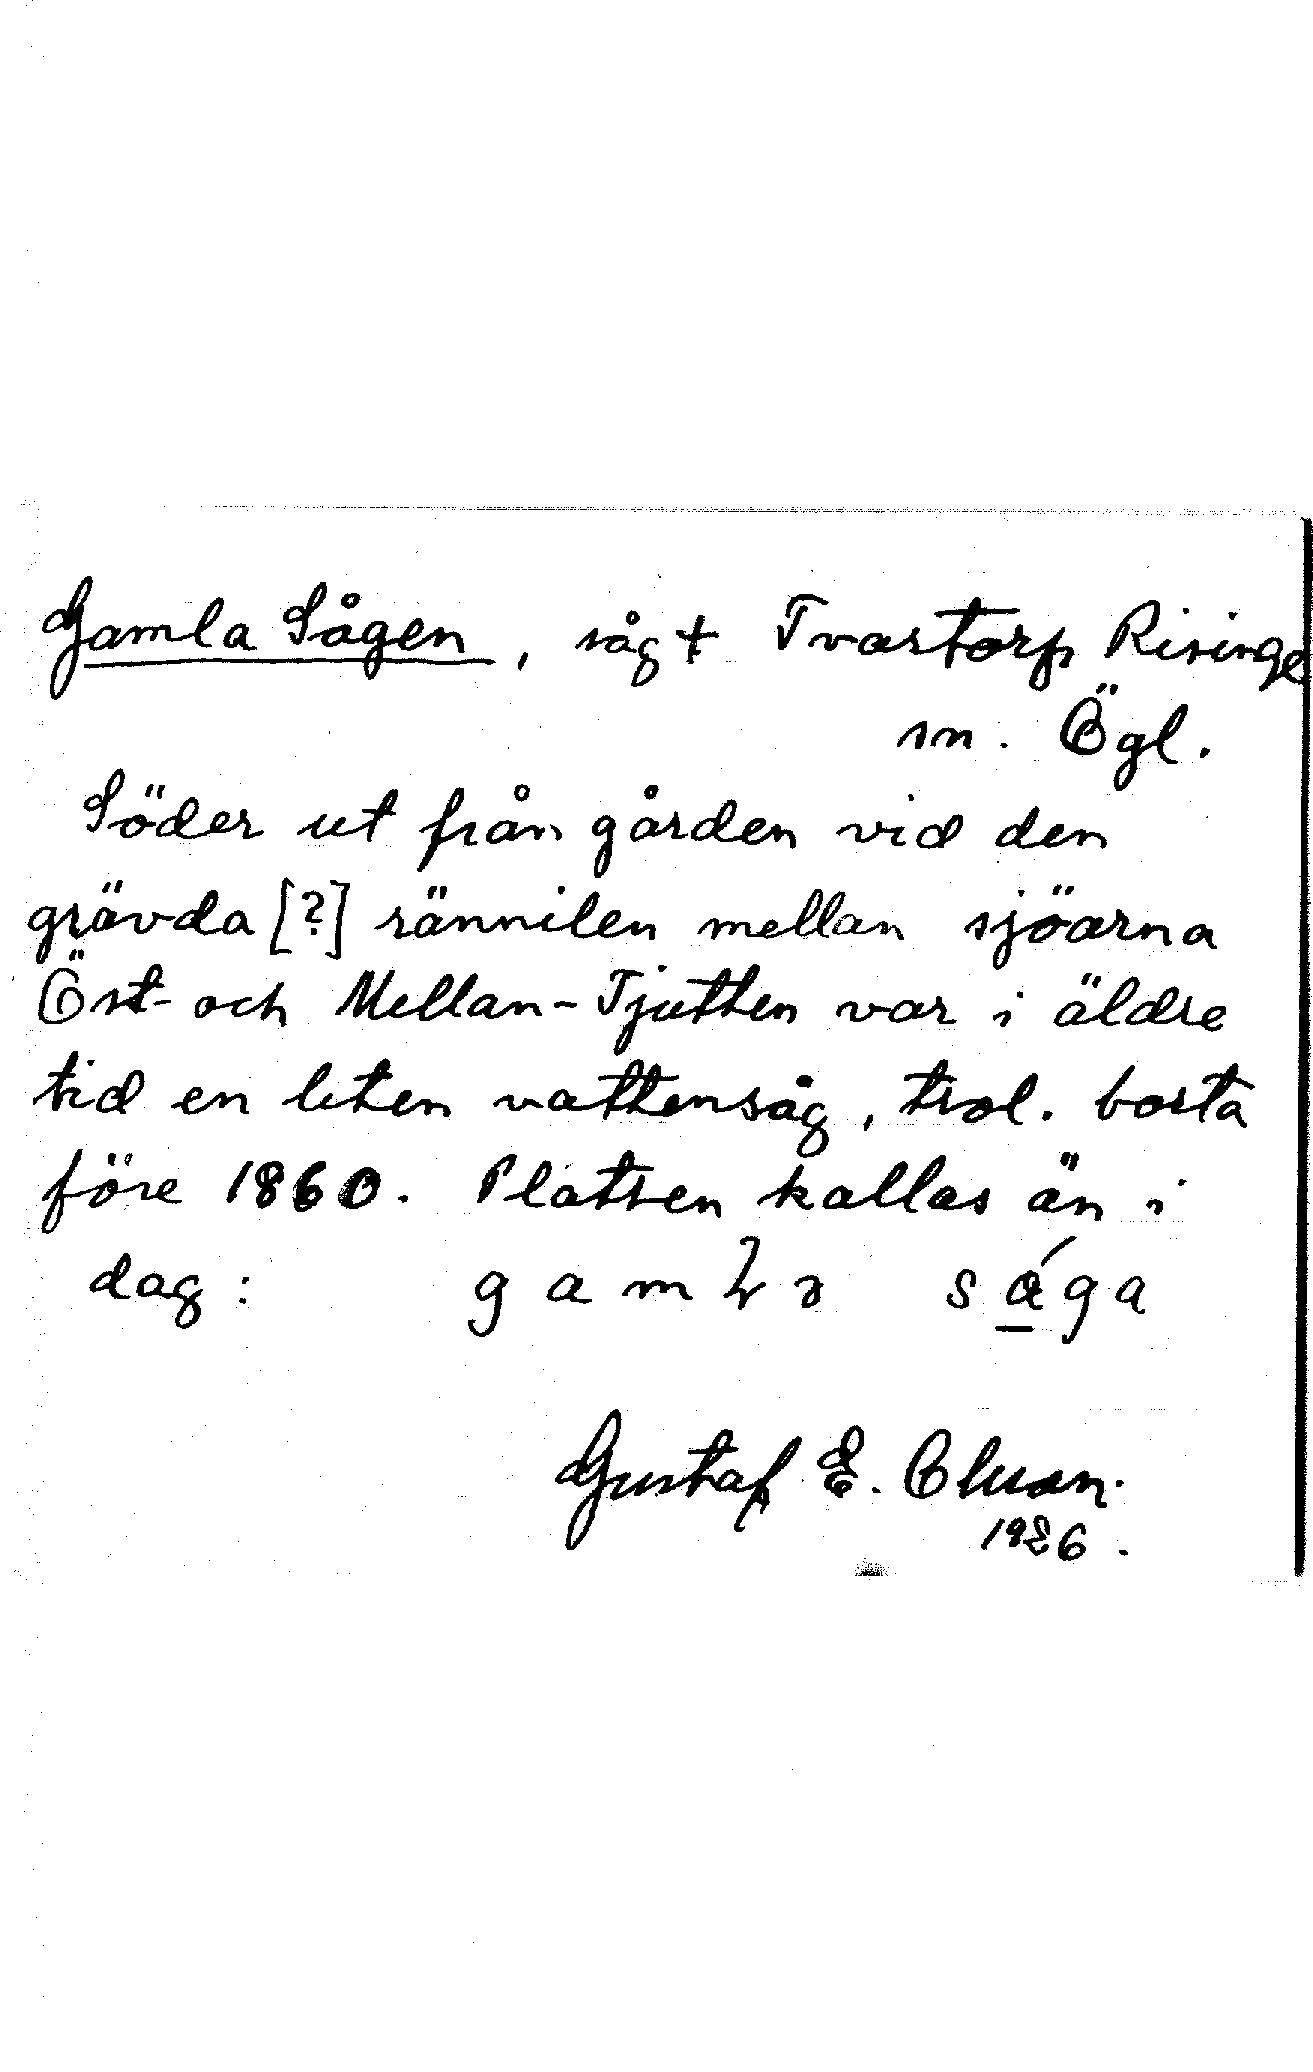 Gamla Sågen, såg † Tvartorp Risinge
sn. Ögl.
Söder ut från gården vid den
grävda [?] rännilen mellan sjöarna
Öst- och Mellan-Tjutten var i äldre
tid en liten vattensåg, trol. borta
före 1860. Platsen kallas än i
dag: gam sága
Gustaf E.
1926.